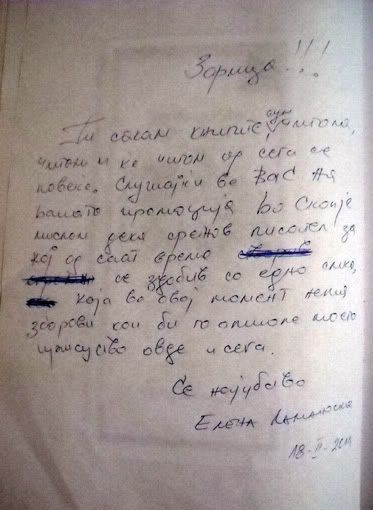 Зорица...!!!
Ти сакам книгите,
читам и ќе читам од сега се
повеќе. Слушајќи ве Вас на
Вашата промоција во Скопје
мислам дека сретнов писател за
кој од саат време
се здобив со една слика,
која во овој момент нема
зборови кои би го опишале моето
присуство овде и сега.
Се најубаво
Елена
18-II-2011